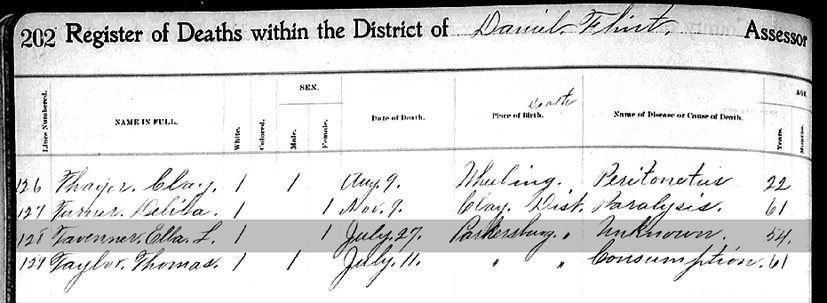 202 Register of Deaths within the District of Daniel Flint, Assessor
Lines Numbered. NAME IN FULL. White. Colored. SEX. Male. Female. Date of Death. Place of Birth. Death Name of Disease or Cause of Death. AGE Years. Months.
126 Thayer. Clay. 1 1 Aug. 9. Wheeling. Peritonetus 22
127 Turner. Delila. 1 1 Nov. 9. Clay. Dist. Paralysis. 61
128 Tavenner. Ella. L. 1 1 July. 27. Parkersburg. " Unknown. 54.
129 Taylor. Thomas. 1 1 July. 11. " " Consumption. 61